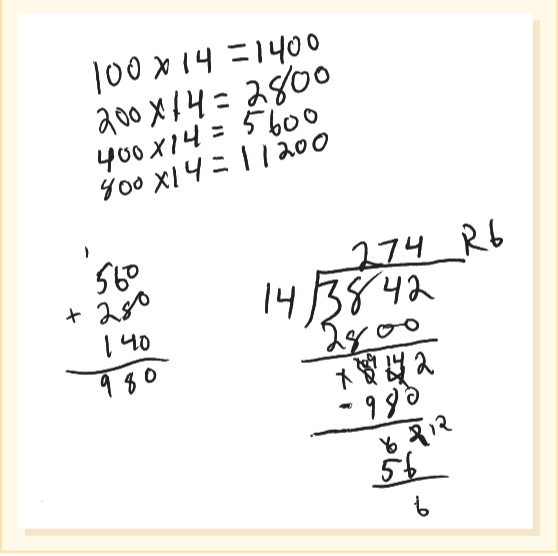 100 x 14 = 1400
200 x 14 = 2800
400 x 14 = 5600
800 x 14 = 11200
1
560
+ 280
140
980
274 R6
14 3842
2800
14 2
- 980
6 12
56
6